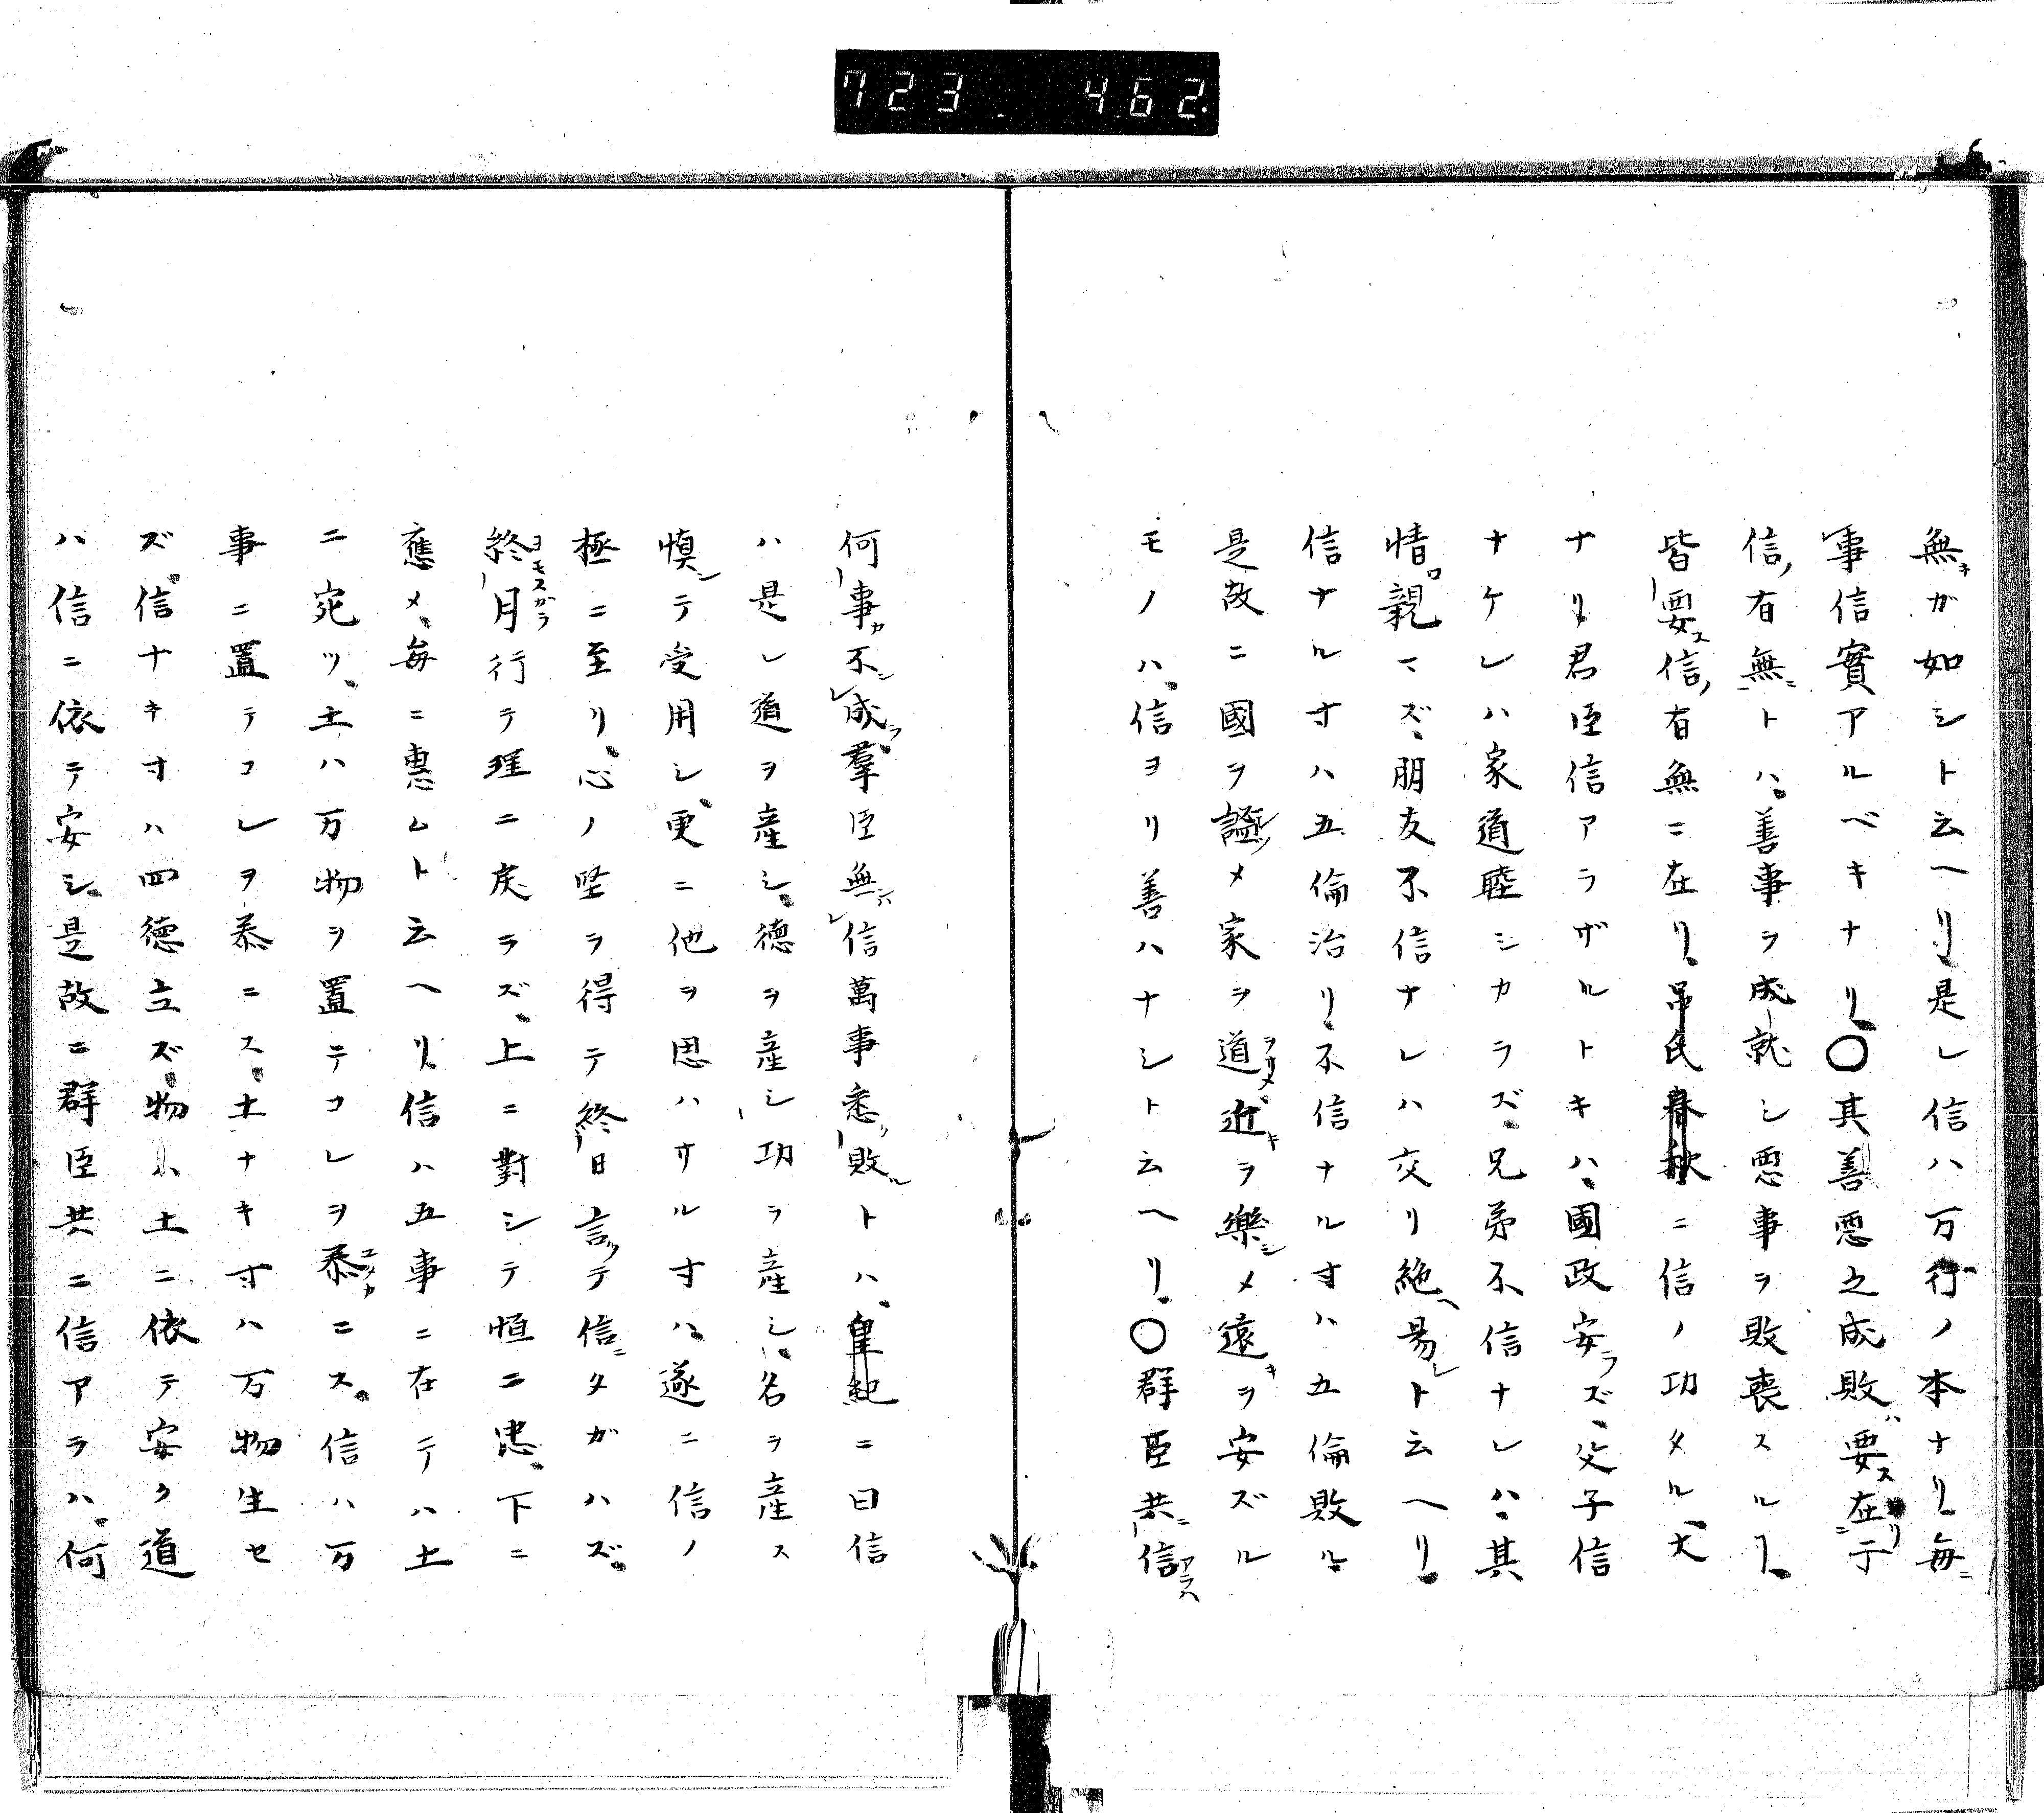 723 462
無キガ如シト云ヘリ是レ信ハ万行ノ本ナリ毎ニ
事信實アルベキナリ。〇其善悪之成敗ハ要ス在リ二于
信ノ有無ニ一トハ、善事ヲ成就シ悪事ヲ敗喪スルㄱ、
皆要ス信ノ有無ニ在リ、呂氏春秋ニ信ノ功タル、大
ナリ、君臣信アラザルトキハ、國政安ラズ、父子信
ナケレハ家道睦シカラズ、兄弟不信ナレハ、其
情親マズ、朋友不信ナレハ交リ絶ヘ易シト云ヘリ。
信ナルヰハ五倫治リ、不信ナルヰハ五倫敗ル、
是故ニ國ヲ謐メ家ヲ道ヲサメ、近キヲ樂シメ遠キヲ安ズル
モノハ、信ヨリ善ハナシト云ヘリ。〇群臣共ニ信アラハ
何事カ不ンレ成ラ、羣臣無ンハレ信萬事悉ク敗ルトハ、皇紀ニ曰信
ハ是レ道ヲ産シ、徳ヲ産シ功ヲ産シ、名ヲ産ス
慎シテ受用シ、更ニ他ヲ思ハサル寸ハ、遂ニ信ノ
極ニ至リ、心ノ堅ヲ得テ終日言ツテ信ニタガハズ。
終月ヨモスガラ行テ理ニ戻ラズ、上ニ對シテ恒ニ忠、下ニ
應メ、毎ニ惠ムト云ヘリ、信ハ五事ニ在テハ土
ニ宛ツ、土ハ万物ヲ置テコレヲ泰ユタカニス。信ハ万
事ニ置テコレヲ泰ニス、土ナキ寸ハ万物生セ
ズ、信ナキ寸ハ四徳立ズ、物ハ土ニ依テ安ク道
ハ信ニ依テ安シ、是故ニ群臣共ニ信アラハ、何